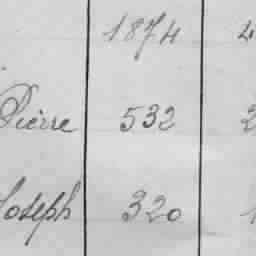 1874 4
Pierre 532 2
Joseph 320 1